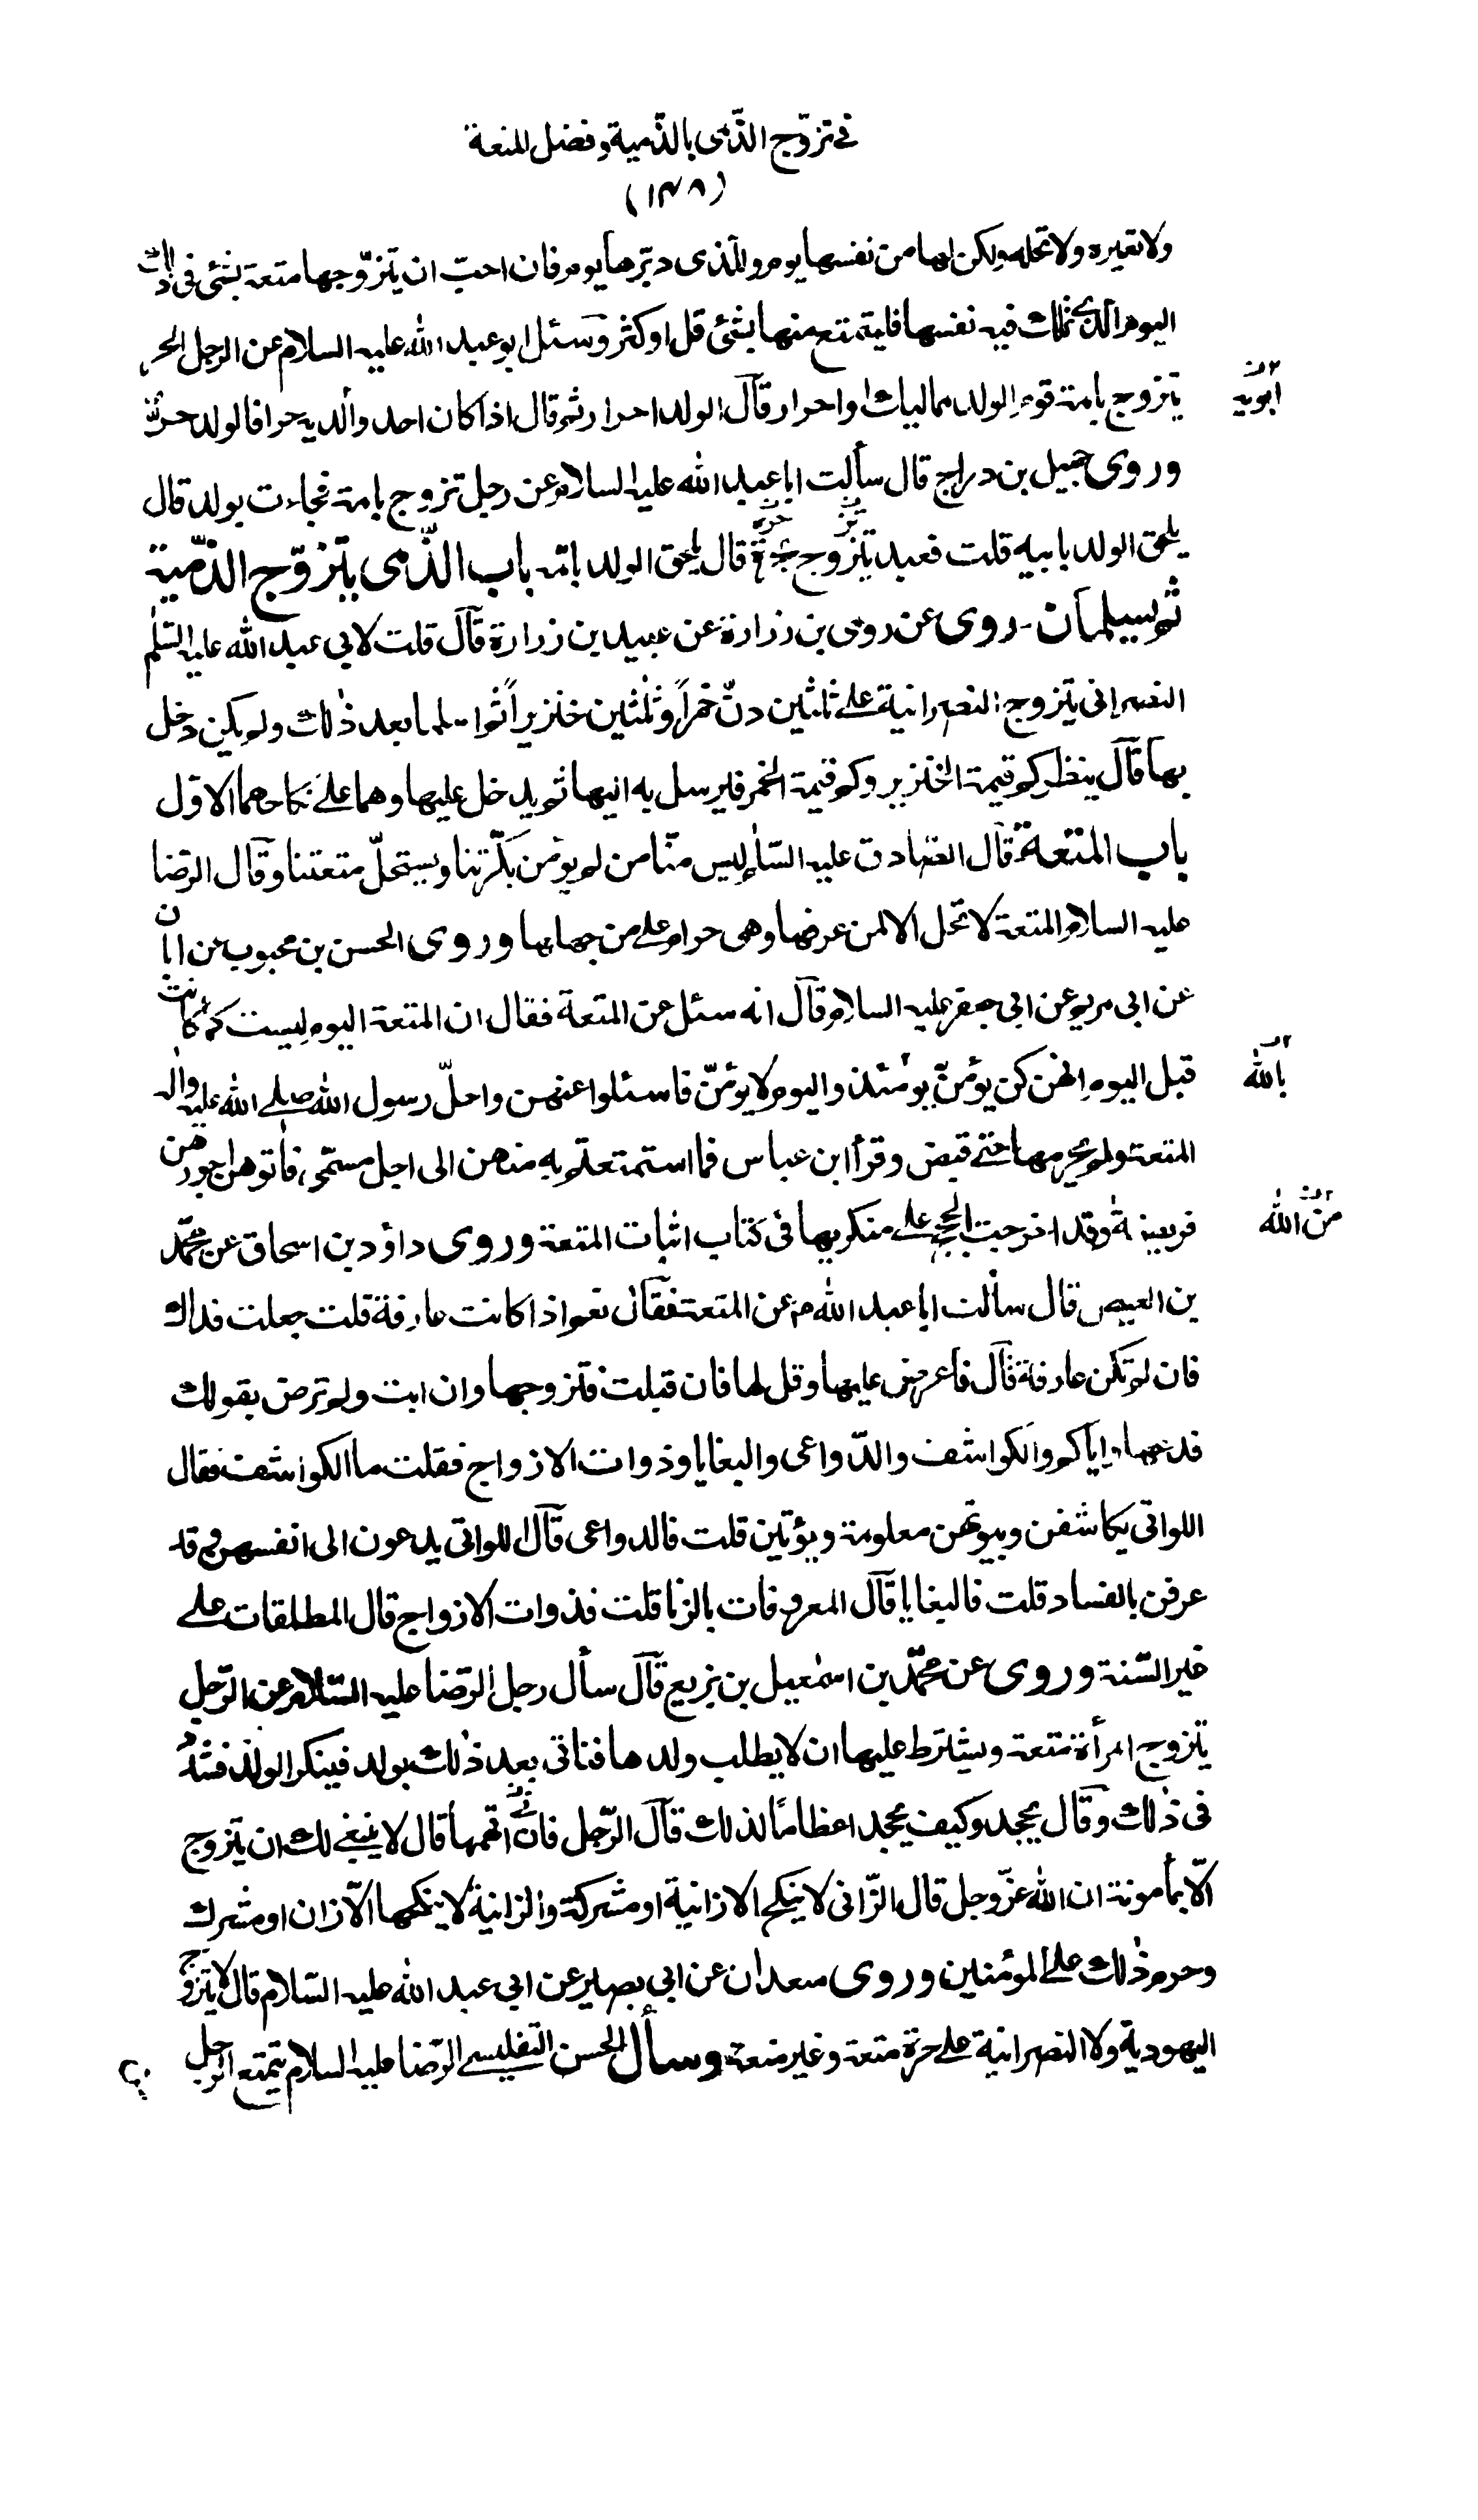 فى تزوّج الذّمى بالذّمية وفضل المتعة
(١٤٨)
ولا تعيره ولا تحله ولكن لها من نفسها يوم والذى دبّرها يوم فان احبّ ان يتزوّجها متعة بشئ فى ذلك
اليوم الذى تملك فيه نفسها فليتمتع منها بشئ قل او كثر وسئل ابو عبد الله عليه السلام عن الرجل الحر
يتزوج بامة قوم الولد مماليك او احرار قال الولد احرار ثم قال اذا كان احد والديه حرا فالولد حرّ
ابويه
وروى جميل بن دراج قال سألت ابا عبد الله عليه السلام عن رجل تزوج بامة فجاءت بولد قال
يلحق الولد بابيه قلت فعبد يتزوج حرة قال يلحق الولد بامّه باب الذّمى يتزوّج الذّمّية
ثم يسلمان - روى عن رومى بن زرارة عن عبيد بن زرارة قال قلت لابى عبد الله عليه السّلم
النصرانى يتزوج النصرانية على ثلثين دنّ خمراً وثلثين خنزيراً ثم اسلما بعد ذلك ولم يكن دخل
بها قال ينظر كم قيمة الخنزير وكم قيمة الخمر فيرسل به اليها ثم يدخل عليها وهما على نكاحهما الاول
باب المتعة قال الصادق عليه السّلم ليس منّا من لم يؤمن بكرّتنا ويستحلّ متعتنا وقال الرّضا
عليه السلام المتعة لا تحل الا لمن عرفها وهى حرام على من جهلها وروى الحسن بن محبوب عن ابان
عن ابى مريم عن ابى جعفر عليه السلام قال انه سئل عن المتعة فقال ان المتعة اليوم ليست كما كانت
قبل اليوم انهن كن يؤمنّ يومئذ واليوم لا يؤمنّ فاسئلوا عنهن واحلّ رسول الله صلى الله عليه واله
بالله
المتعة ولم يحرمها حتى قبض وقرأ ابن عباس فما استمتعتم به منهن الى اجل مسمّى فاتوهن اجورهن
فريضة وقد اخرجت الحجج على منكريها فى كتاب اثبات المتعة وروى داؤد بن اسحاق عن محمّد
من الله
بن الفيض قال سألت ابا عبد الله ع عن المتعة فقال نعم اذا كانت عارفة قلت جعلت فداك
فان لم تكن عارفة قال فاعرض عليها وقل لها فان قبلت فتزوجها وان ابت ولم ترض بقولك
فدعها واياكم والكواشف والدّواعى والبغايا وذوات الازواج فقلت ما الكواشف فقال
اللواتى يكاشفن وبيوتهن معلومة ويؤتين قلت فالدواعى قال اللواتى يدعون الى انفسهن وقد
عرفن بالفساد قلت فالبغايا قال المعروفات بالزنا قلت فذوات الازواج قال المطلقات على
غير السّنة وروى عن محمّد بن اسمعيل بن بزيع قال سأل رجل الرّضا عليه السّلام عن الرّجل
يتزوج المرأة متعة ويشترط عليها ان لا يطلب ولدها فتاتى بعد ذلك بولد فينكر الولد فشدّد
فى ذلك وقال يجحد وكيف يجحد اعظاما لذلك قال الرّجل فان اتهمها قال لا ينبغى لك ان تتزوج
الّا بمأمونة ان الله عزّ وجل قال الزّانى لا ينكح الا زانية او مشركة والزانية لا ينكحها الّا زان او مشرك
وحرم ذلك على المؤمنين وروى سعدان عن ابى بصير عن ابى عبد الله عليه السّلام قال لا يتزوج
اليهودية ولا النصرانية على حرة متعة وغير متعة وسأل الحسن التفليسى الرّضا عليه السلام يتمتع الرجل